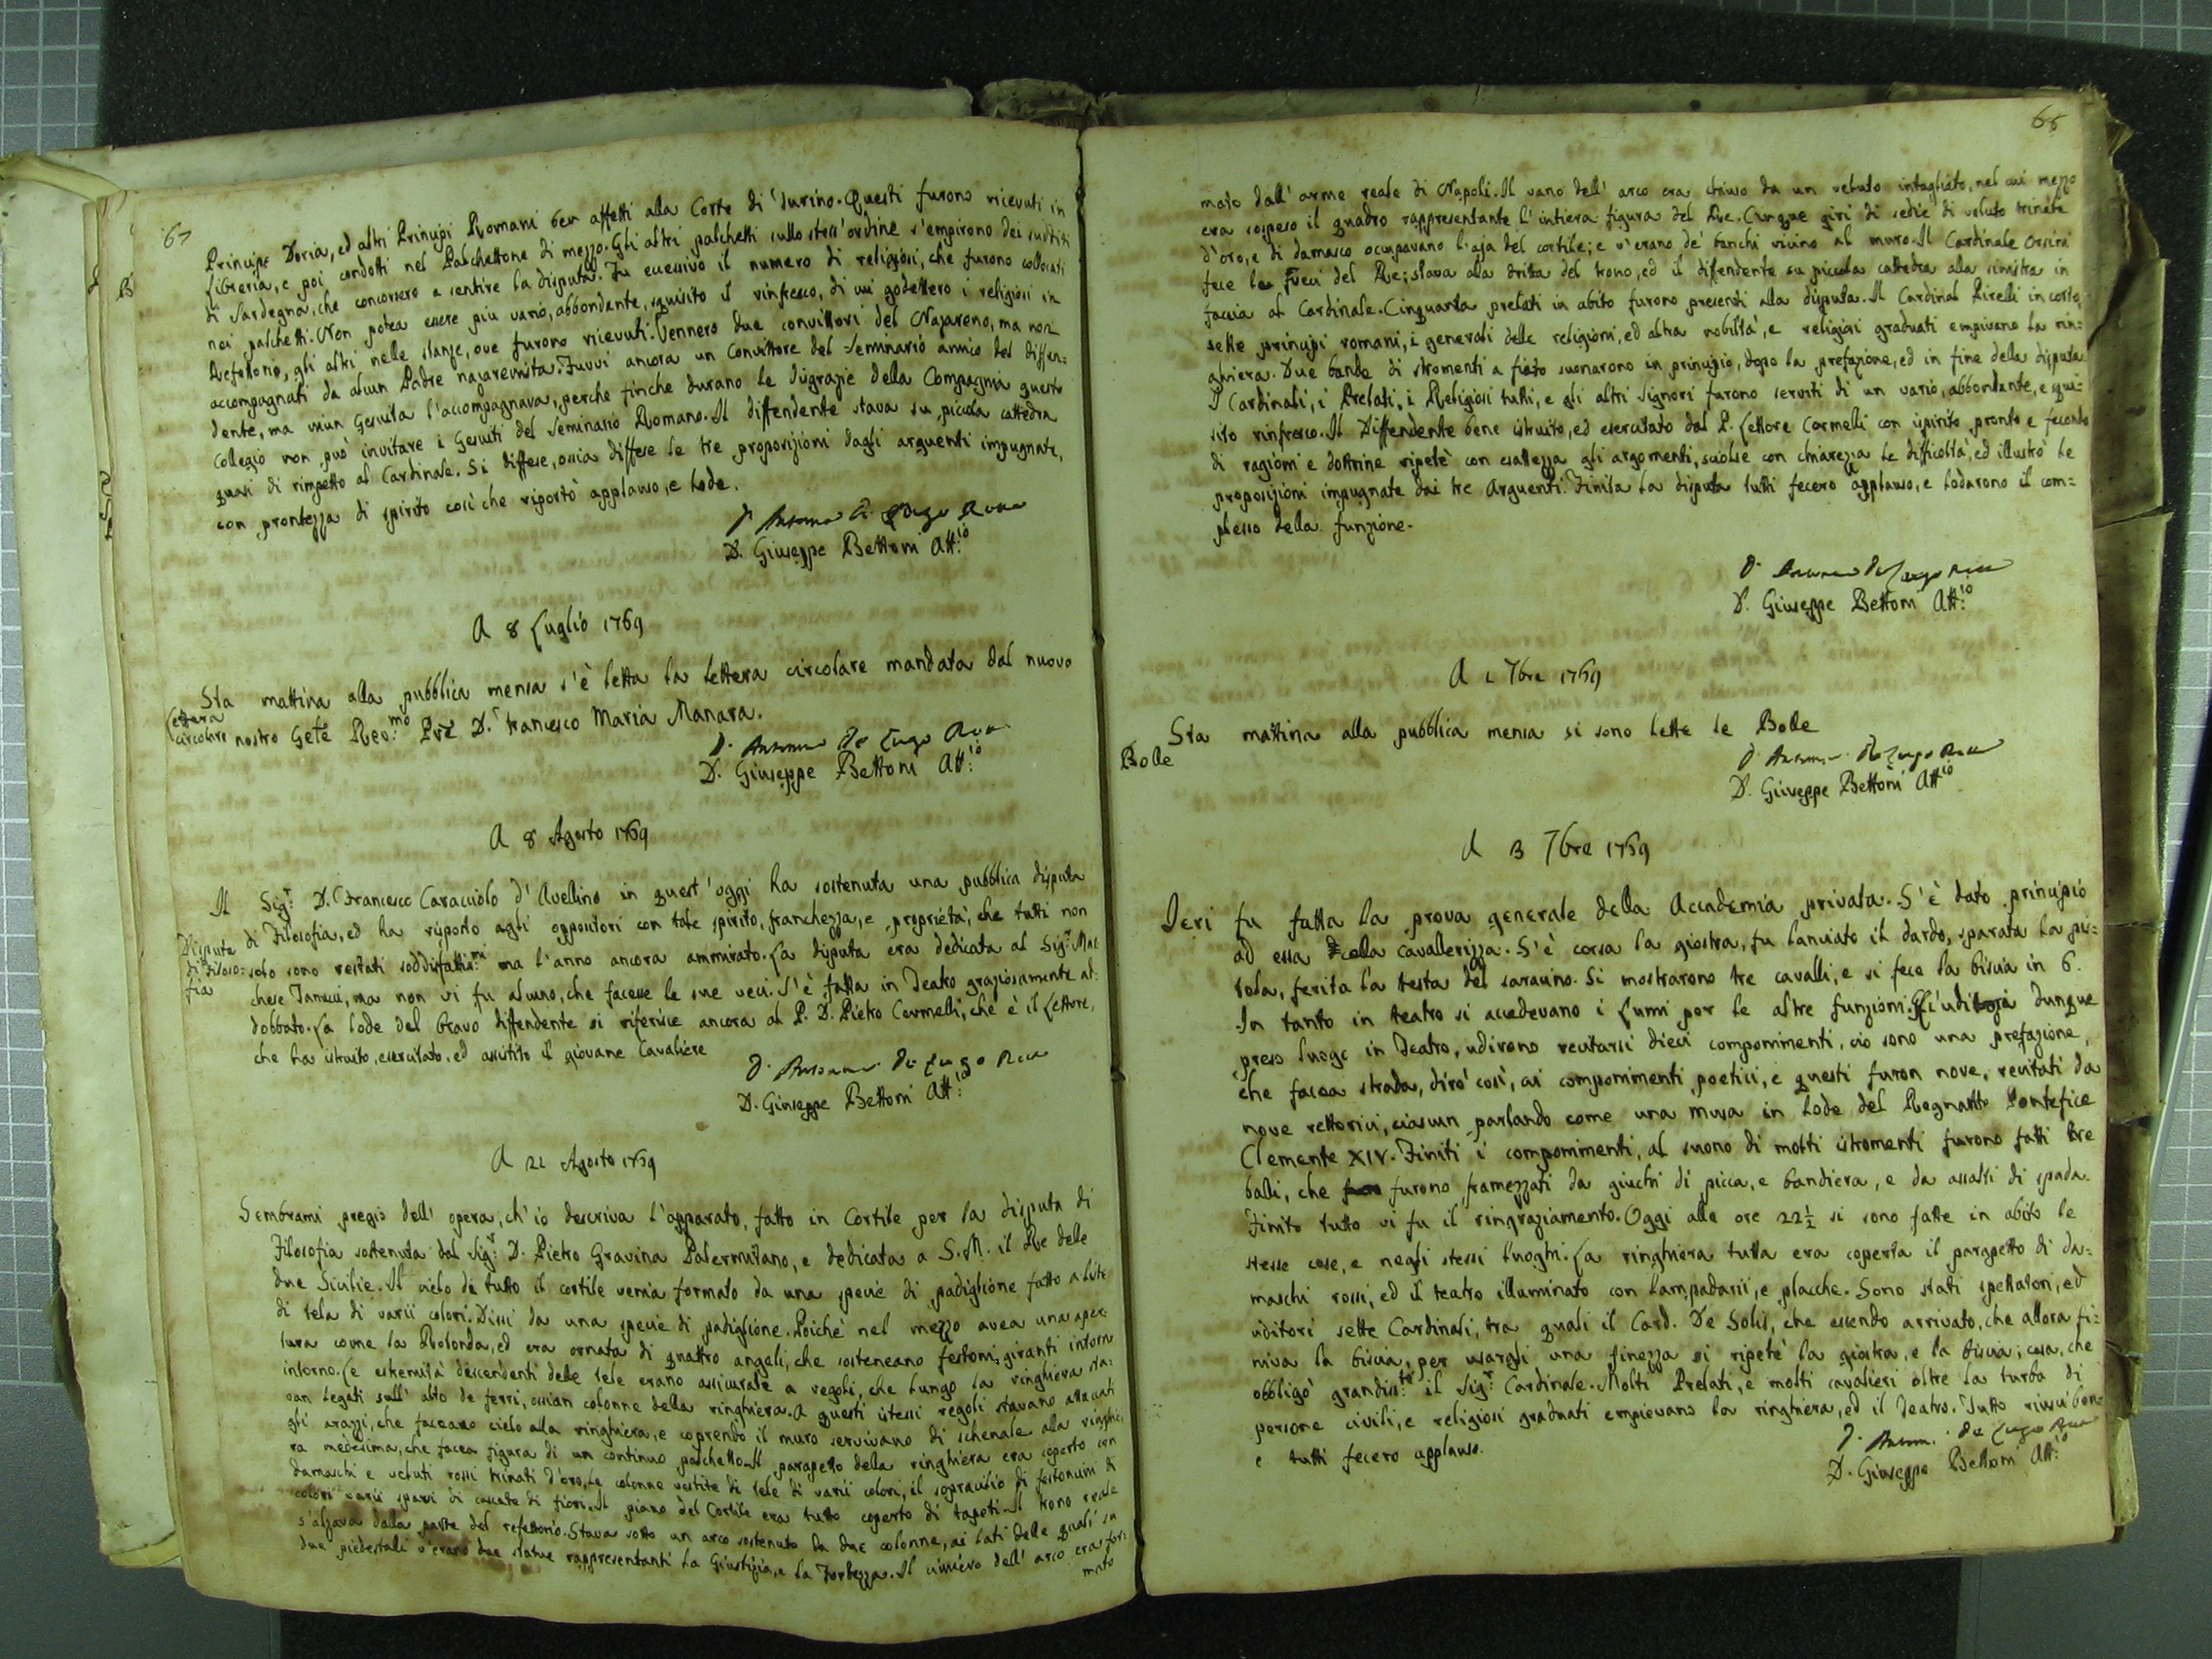 67
Principe Doria, ed altri Principi Romani ben affetti alla Corte di Turino. Questi furono ricevuti in
libreria, e poi condotti nel Palchettone di mezzo. Gli altri palchetti sullo stess'ordine s'empirono dei sudditi
di Sardegna, che concorsero a sentire la disputa. Fu eccessivo il numero di religiosi, che furono collocati
nei palchetti. Non potea essere più vario, abbondante, squisito il rinfresco, di cui godettero i religiosi in
Refettorio, gli altri nelle stanze, ove furono ricevuti. Vennero due convittori del Nazareno, ma non
accompagnati da alcun Padre nazarenista. Fuvvi ancora un Convittore del Seminario amico del diffen=
dente, ma niun Gesuita l'accompagnava, perche finche durano le disgrazie della Compagnia questo
Collegio non può invitare i Gesuiti del Seminario Romano. Il diffendente stava su piccola cattedra
quasi di rimpetto al Cardinale. Si diffese, ossia diffese le tre proposizioni dagli arguenti impugnate,
con prontezza di spirito così che riportò applauso, e lode.
D. Giuseppe Bettoni Att:io
A 8 Luglio 1769
Sta mattina alla pubblica mensa s'è letta la lettera circolare mandata dal nuovo
Lettera
circolare
nostro Gete Rev:mo Pre D. Francesco Maria Manara.
D. Antonio De Lugo
D. Giuseppe Bettoni Att:io
A 8 Agosto 1769
Il Sigr D. Francesco Caracciolo d'Avellino in quest'oggi ha sostenuta una pubblica disputa
di Filosofia, ed ha risposto agli oppositori con tale spirito, franchezza, e proprietà, che tutti non
Disputa
di Filoso=
fia
solo sono restati soddisfattis:mi ma l'anno ancora ammirato. La disputa era dedicata al Sigr Mar
chese Tanucci, ma non vi fu alcuno, che facesse le sue veci. S'è fatta in Teatro graziosamente ad=
dobbato. La lode del bravo diffendente si riferisce ancora al P. D. Pietro Cermelli, che è il Lettore,
che ha istruito, esercitato, ed assistito il giovane Cavaliere
D. Antonio De Lugo
D. Giuseppe Bettoni Att:io
A 21 Agosto 1769
Sembrami pregio dell'opera, ch'io descriva l'apparato, fatto in Cortile per la disputa di
Filosofia sostenuta dal Sigr D. Pietro Gravina Palermitano, e dedicata a S. M. il Re delle
due Sicilie. Il cielo di tutto il cortile venia formato da una specie di padiglione fatto a liste
di tela di varii colori. Dissi da una specie di padiglione. Poichè nel mezzo avea una aper=
tura come la Rotonda, ed era ornata di quattro angeli, che sosteneano festoni giranti intorno
intorno. Le estremità descendenti delle tele erano assicurate a regoli, che lungo la ringhiera sta=
van legati sull'alto de ferri, ossian colonne della ringhiera. A questi istessi regoli stavano attaccati
gli arazzi, che faceano cielo alla ringhiera, e coprendo il muro servivano di schenale alla ringhie
ra medesima, che facea figura di un continuo palchetto. Il parapetto della ringhiera era coperto con
damaschi e veluti rossi trinati d'oro, le colonne vestite di tele di varii colori, il sopraciliò di festoncini di
colori varii sparsi di cascate di fiori. Il piano del Cortile era tutto coperto di tapeti. Il trono reale
s'alzava dalla parte del refettorio. Stava sotto un arco sostenuto da due colonne, ai lati delle quali su
due piedestali v'erano due statue rappresentanti la Giustizia, e la Fortezza. Il cimiero dell'arco era for=
mato
68
mato dall'arme reale di Napoli. Il vano dell'arco era chiuso da un veluto intagliato, nel cui mezzo
era sospeso il quadro rappresentante l'intiera figura del Re. Cinque giri di sedie di veluto trinate
d'oro, e di damasco occupavano l'aja del cortile; e v'erano de' banchi vicino al muro. Il Cardinale Orsini
fece le veci del Re; stava alla dritta del trono, ed il difendente su piccola cattedra alla sinistra in
faccia al Cardinale. Cinquanta prelati in abito furono presenti alla disputa. Il Cardinal Pirelli in corto,
sette principi romani, i generali delle religioni, ed altra nobiltà, e religiosi graduati empivano la rin=
ghiera. Due bande di stromenti a fiato suonarono in principio, dopo la prefazione, ed in fine della disputa.
I Cardinali, i Prelati, i Religiosi tutti, e gli altri Signori furono serviti di un vario, abbondante, e squi=
sito rinfresco. Il Diffendente bene istruito, ed esercitato dal P. Lettore Cermelli con ispirito pronto e fecondo
di ragioni e dottrine ripetè con esattezza gli argomenti, sciolse con chiarezza le difficoltà, ed illustrò le
proposizioni impugnate dai tre Arguenti. Finita la disputa tutti fecero applauso, e lodarono il com=
plesso della funzione.
D. Giuseppe Bettoni Att:io
A 1 7bre 1769
Sta mattina alla pubblica mensa si sono lette le Bolle
Bolle
D. Antonio De Lugo
D. Giuseppe Bettoni Att:io
A 13 7bre 1769
Ieri fu fatta la prova generale della Accademia privata. S'è dato principio
ad essa dalla Cavallerizza. S'è corsa la giostra, fu lanciato il dardo, sparata la pis=
tola, ferita la testa del saracino. Si mostrarono tre cavalli, e si fece la biscia in 6.
In tanto in teatro si accedevano i lumi per le altre funzioni. Gl'uditori dunque
preso luogo in Teatro, udirono recitarsi dieci componimenti, cio sono una prefazione,
che facea strada, dirò così, ai componimenti poetici, e questi furon nove, recitati da
nove rettorici, ciascun parlando come una musa in lode del Regnante Pontefice
Clemente XIV. Finiti i componimenti, al suono di molti istromenti furono fatti tre
balli, che furono framezzati da giuchi di picca, e bandiera, e da assalti di spada.
Finito tutto vi fu il ringraziamento. Oggi alle ore 22½ si sono fatte in abito le
stesse cose, e negli stessi luoghi. La ringhiera tutta era coperta il parapetto di da=
maschi rossi, ed il teatro illuminato con lampadarii, e placche. Sono stati spettatori, ed
uditori sette Cardinali, tra quali il Card. De Solis, che essendo arrivato, che allora fi=
niva la biscia, per usargli una finezza si ripetè la giostra, e la biscia; cosa, che
obbligò grandiss:te il Sigr Cardinale. Molti Prelati, e molti cavalieri oltre la turba di
persone civili, e religiosi graduati empievano la ringhiera, ed il Teatro. Tutto riuscì bene
e tutti fecero applauso.
D. De Lugo
D. Giuseppe Bettoni Att:io